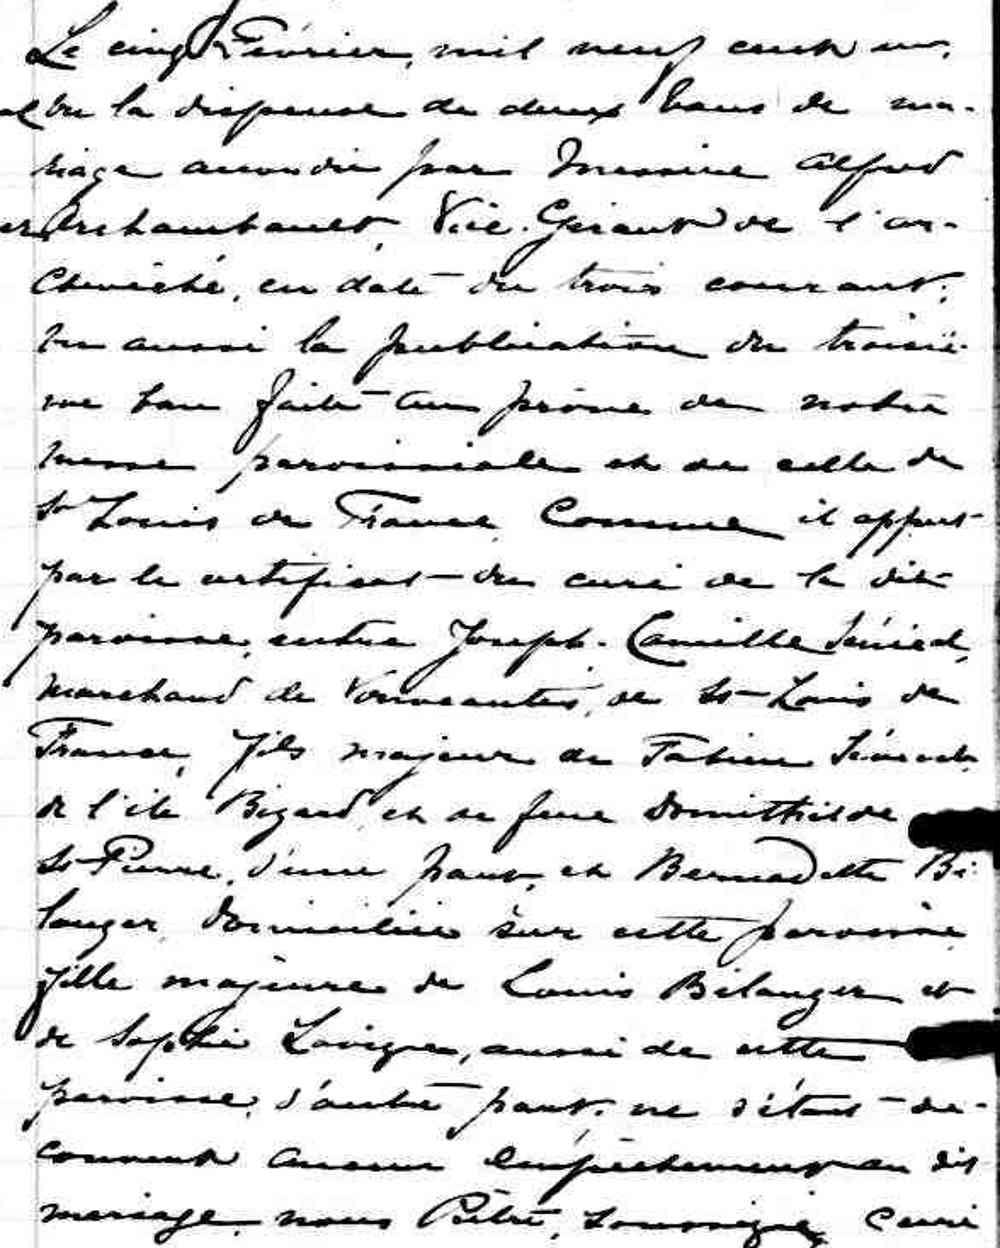 Le cinq Février, mil neuf cent un,
vu la dispense de deux bans de ma-
riage accordée par Messire Alfred
Archambault, Vic. Gérant de l'ar-
chevêché, en date du trois courant;
vu aussi la publication du troisiè-
me ban faite au prône de notre
messe paroissiale et de celle de
St Louis de France comme il appert
par le certificat du curé de la dite
paroisse, entre Joseph-Camille Sénécal,
marchand de de St-Louis de
France, fils majeur de Fabien Sénécal
de l'île Bizard et de feue Domithilde
St-Pierre, d'une part, et Bernadette Bé-
langer, domiciliée sur cette paroisse
fille majeure de Louis Bélanger et
de Sophie Lavigne, aussi de cette
paroisse, d'autre part, ne s'étant dé-
couvert aucun empêchement au dit
mariage, nous Prêtre, soussigné, curé